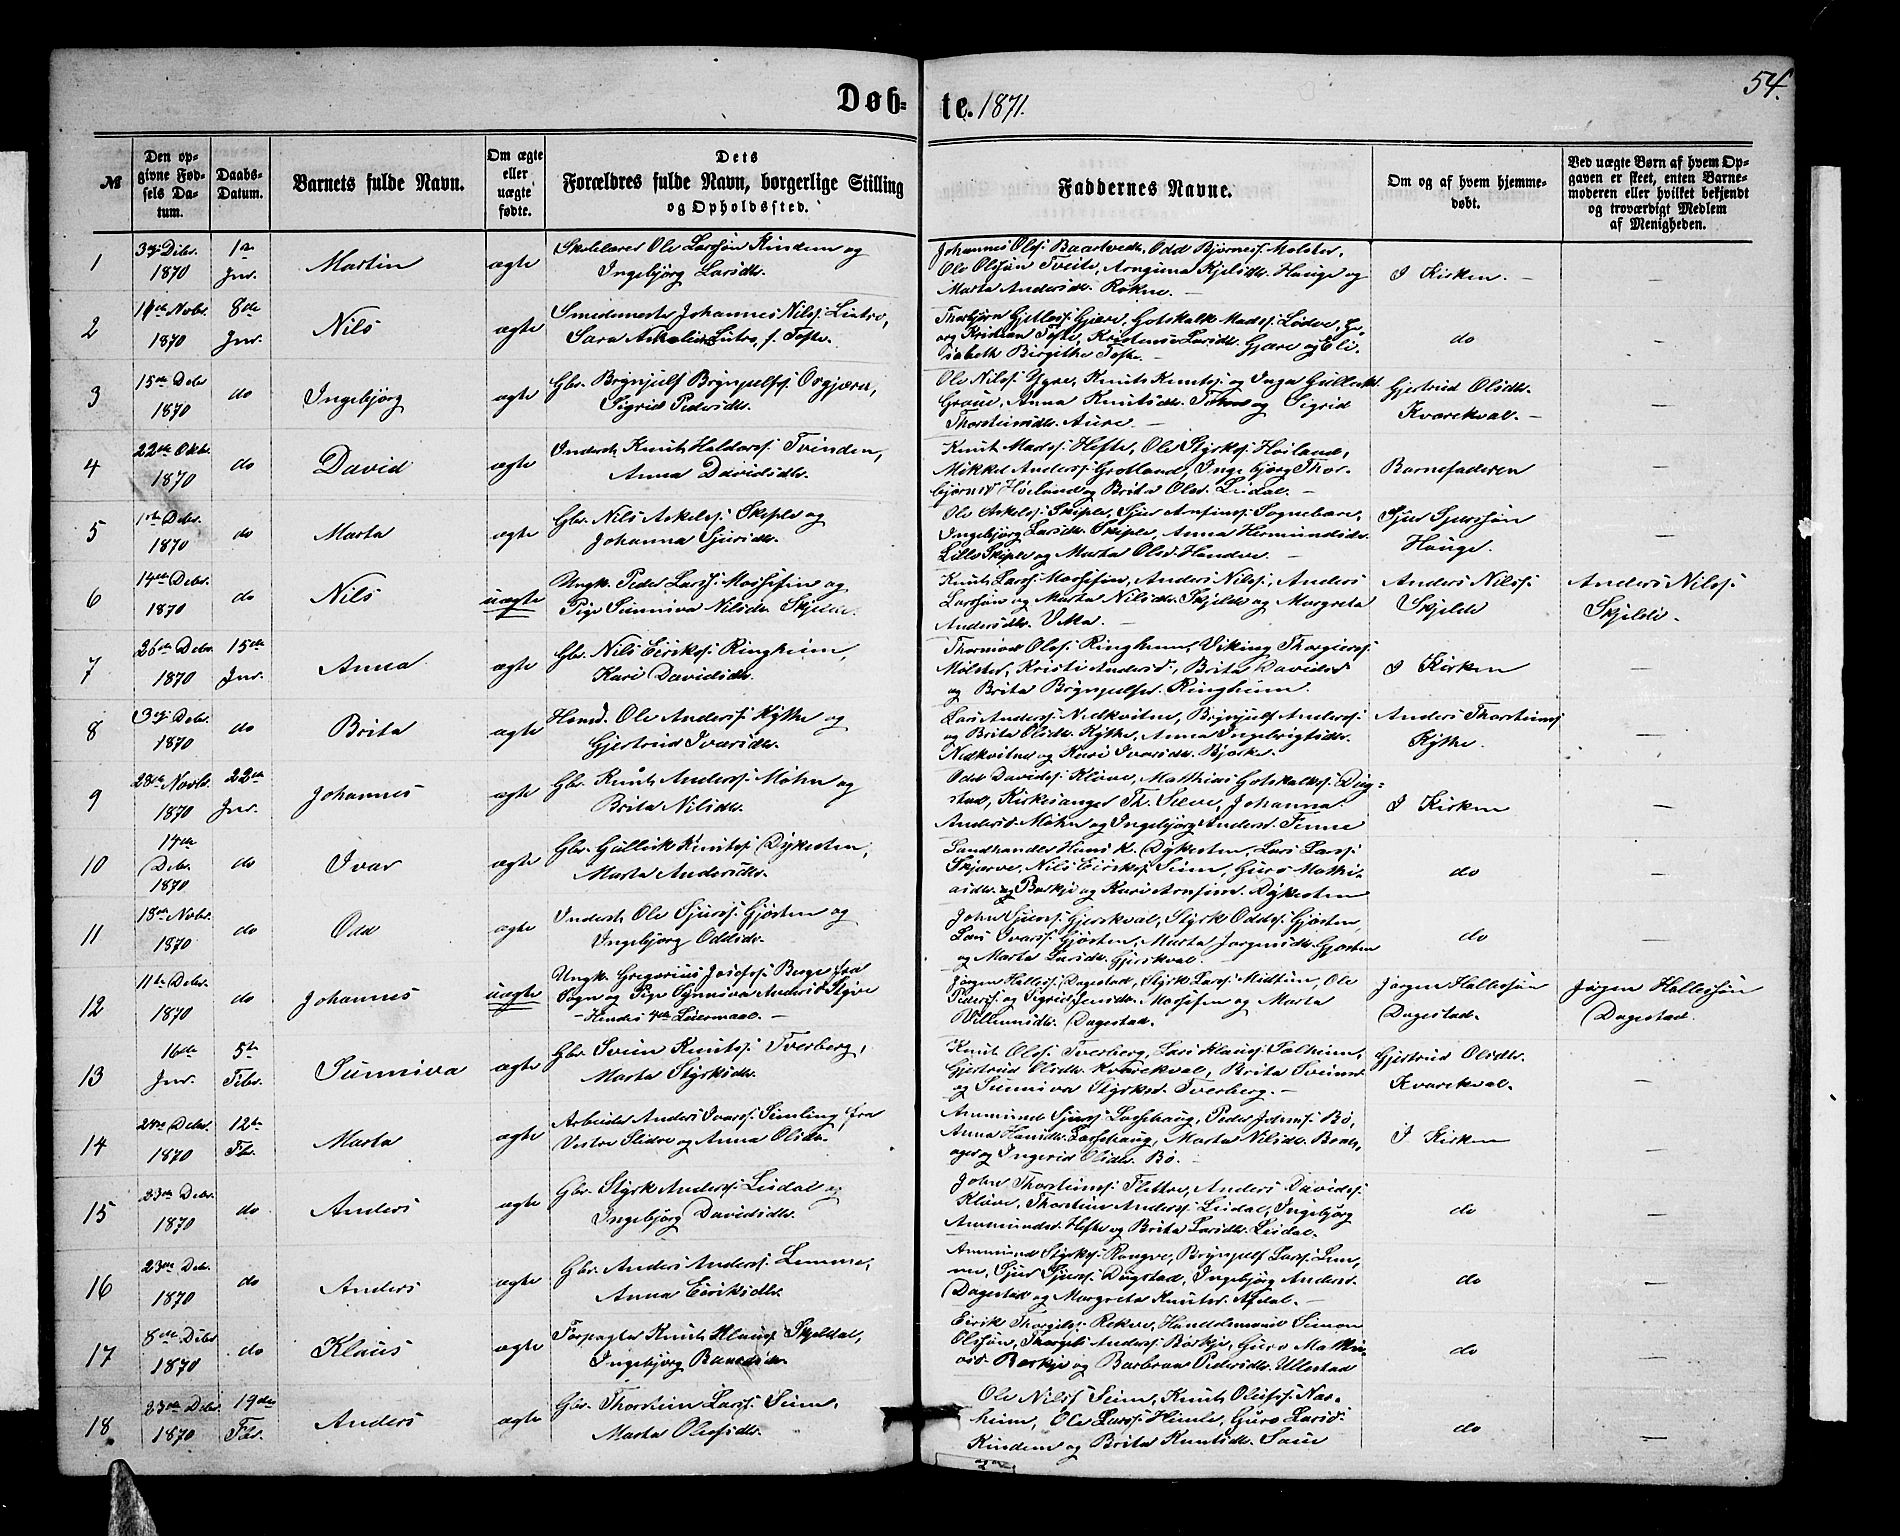 Døb-
te. 1871.
54.
№
Den op-
givne Fød-
sels Da-
tum.
Daabs-
Datum.
Barnets fulde Navn.
Om ægte
eller
uægte
fødte.
Dets
Forældres fulde Navn, borgerlige Stilling
og Opholdssted.
Faddernes Navne.
Om og af hvem hjemme-
døbt.
Ved uægte Børn af hvem Op-
gaven er skeet, enten Barne-
moderen eller hvilket bekjendt
og troværdigt Medlem
af Menigheden.
1
3die Debr.
1870
1ste
Jnr.
Martin
ægte
Skolelærer Ole Larssøn Kindem og
Ingebjørg Larsdtr.
Johannes Olss: Baartvedt, Odd Bjørness: Molster,
Ole Olssøn Tveite, Arnguna Kjelsdtr. Hauge og
Marta Andersdtr. Rokne. –
I Kirken. –
–
2
Novbr.
1870
8de
Jnr.
Nils
ægte
Smedemester Johannes Nilss:
Sara
Thorbjørn Gjelless: Gjære, Gotskalk Madss: Lødve,
Kristian Tofte, Kristense Larsdtr. Gjære og Eli-
sabeth Birgithe Tofte. –
do
–
3
15de Debr
1870
do
Ingebjörg
ægte
Gbr. Brynjulf Brynjulfss:
Sigrid Pedersdtr.
Ole Nilss: Ygre, Knut Knutss: og Inga Gulleiksd.
Anna Knutsdtr. og Sigrid
Thorsteinsdtr. Aure. –
Gjertrud Olsdtr.
Kvarekval. –
–
4
22de Oktbr.
1870
do
David
ægte
Inderst Knut Haldorss: Tvinden,
Anna Davidsdtr.
Knut Madss: Hefte, Ole Styrkss: Høiland,
Mikkel Anderss: Grotland, Ingebjørg Thor-
bjørnsd Høiland og Brita Olsd. Lidal. –
Barnefaderen
–
5
1ste Debr.
1870
do
Marta
ægte
Gbr. Nils Askelss: Skiple og
Johanna Sjursdtr.
Ole Askelss: Skiple, Sjur Arnfinss:
Ingebjørg Larsdtr. Skiple, Anna Hermundsdtr.
Lille Skiple og Marta Olsd. Handere. –
Sjur Sjurssøn
Hauge.
–
6
14de Debr.
1870
do
Nils
uægte
Ungk. Peder Larss: Mosfifin og
Pige Sunniva Nilsdtr. Skjelde.
Knut Larss: Mosfifin, Anders Nilss:, Anders
Larssøn og Marta Nilsdtr. Skjelde og Margreta
Andersdtr.
Anders Nilss:
Skjelde
Anders Nilss:
Skjelde.
7
26de Debr.
1870
15de
Jnr.
Anna
ægte
Gbr. Nils Eirikss: Ringheim,
Kari Davidsdtr.
Thormod Olss: Ringheim, Viking Thorgierss:
Mølster, Kristi Andersd:, Brita Davidsd
og Brita Brynjulfsd. Ringheim.
I Kirken
–
8
3die Debr.
1870
do
Brita
ægte
Ole Anderss: Kythe og
Gjertrud Ivarsdtr.
Lars Anderss: Nedkvitne, Brynjulf Anderss:
og Brita Olsdtr. Kythe, Anna Ingebrigtsdtr.
Nedkvitne og Kari Ivarsdtr. Bjørke.
Anders Thorsteinss
Kythe.
–
9
28de Novbr
1870
22de
Jnr.
Johannes
ægte
Gbr. Knut Anderss: Møhn og
Brita Nilsdtr.
Odd Davidss: Kløve, Matthias Gotskalkss: Dag-
stad, Kirkesanger Th. Sæve, Johanna
Andersd. Møhn og Ingebjørg Andersd. Finne
I Kirken
–
10
14de
Debr.
1870
do
Ivar
ægte
Gbr. Gullik Knutss: Dykesten,
Marta Andersdtr.
Landhandler Hans K. Dykesten, Lars Larss:
Skjerve, Nils Eirikss: Seim, Guro Mathi-
asdtr. Børkje og Kari Arnfinsd. Dykesten
do
–
11
18de Novbr.
1870
do
Odd
ægte
Inderst Ole Sjurss: Gjøsten og
Ingebjørg Oddsdtr.
John Sjurss: Gjerskval, Styrk Oddss: Gjøsten,
Lars Ivarss: Gjøsten, Marta Jørgensdtr. Gjøsten
og Marta Larsdtr. Gjerskval.
do
–
12
11te Debr.
1870
do
Johannes
uægte
Ungk. Gregorius Josefss: Berge fra
Sogn og Pige Synneva Andersd. Styve
– Hendes 4de Leiermaal. –
Jørgen Halless: Dagestad, Styrk Larss: Midttun, Ole
Pederss: og Sigrid Jensdtr. Mosfifin og Marta
Villumsdtr. Dagestad.
Jørgen Hallessøn
Dagestad.
Jørgen Hallessøn
Dagestad.
13
16de
Jnr.
5te
Febr.
Sunniva
ægte
Gbr. Svein Knutss: Tverberg,
Marta Styrksdtr.
Knut Olss: Tverberg, Lars Klauss: Sælheim,
Gjertrud Olsdtr. Kvarekval, Brita Sveinsd
og Sunniva Styrksd. Tverberg. –
Gjertrud Olsdtr.
Kvarekval.
–
14
Debr.
1870
12te
Fbr.
Marta
ægte
Arbeider Anders Ivarss: Simling fra
Vestre Slidre og Anna Olsdtr.
Ammund Sjurss: Lassehaug, Peder Johnss: Bø,
Anna Hansdtr. Lassehaug, Marta Nilsdtr.
og Ingerid Olsdtr. Bø. –
I Kirken
–
15
23de Debr.
1870
do.
Anders
ægte
Gbr. Styrk Anderss: Lidal og
Ingebjørg Davidsdtr.
John Thorsteinss: Flettre, Anders Davidss:
Kløve, Thorstein Anderss: Lidal, Ingebjørg
Ammundsd. Hefte og Brita Larsdtr. Lidal.
do
–
16
23de Debr.
1870
do
Anders
ægte
Gbr. Anders Anderss: Lemme,
Anna Eiriksdtr.
Ammund Styrkss: Rongve, Brynjulf Larss: Lem-
me, Sjur Sjurss: Dagstad, Ingebjørg Andersd.
Dagestad og Margreta Knutsd. Afdal. –
do
–
17
8de Debr
1870
do
Klaus
ægte
Forpagter Knut Klauss: Skjeldal,
Ingebjørg
Eirik Thorgilss: Rekve, Handelsmand Simon
Olssøn, Thorgils Anderss: Børkje, Guro Mathi-
asd. Børkje og Barbra Pedersdtr. Ullestad
do
–
18
23de Debr.
1870
19de
Fbr.
Anders
ægte
Gbr. Thorstein Larss: Seim,
Marta Olafsdtr.
Ole Nilss Seim, Knut Olafss: Nas-
heim, Ole Larss: Himle, Guro Larsd:
Kindem og Brita Knutsdtr. Saue
do
–